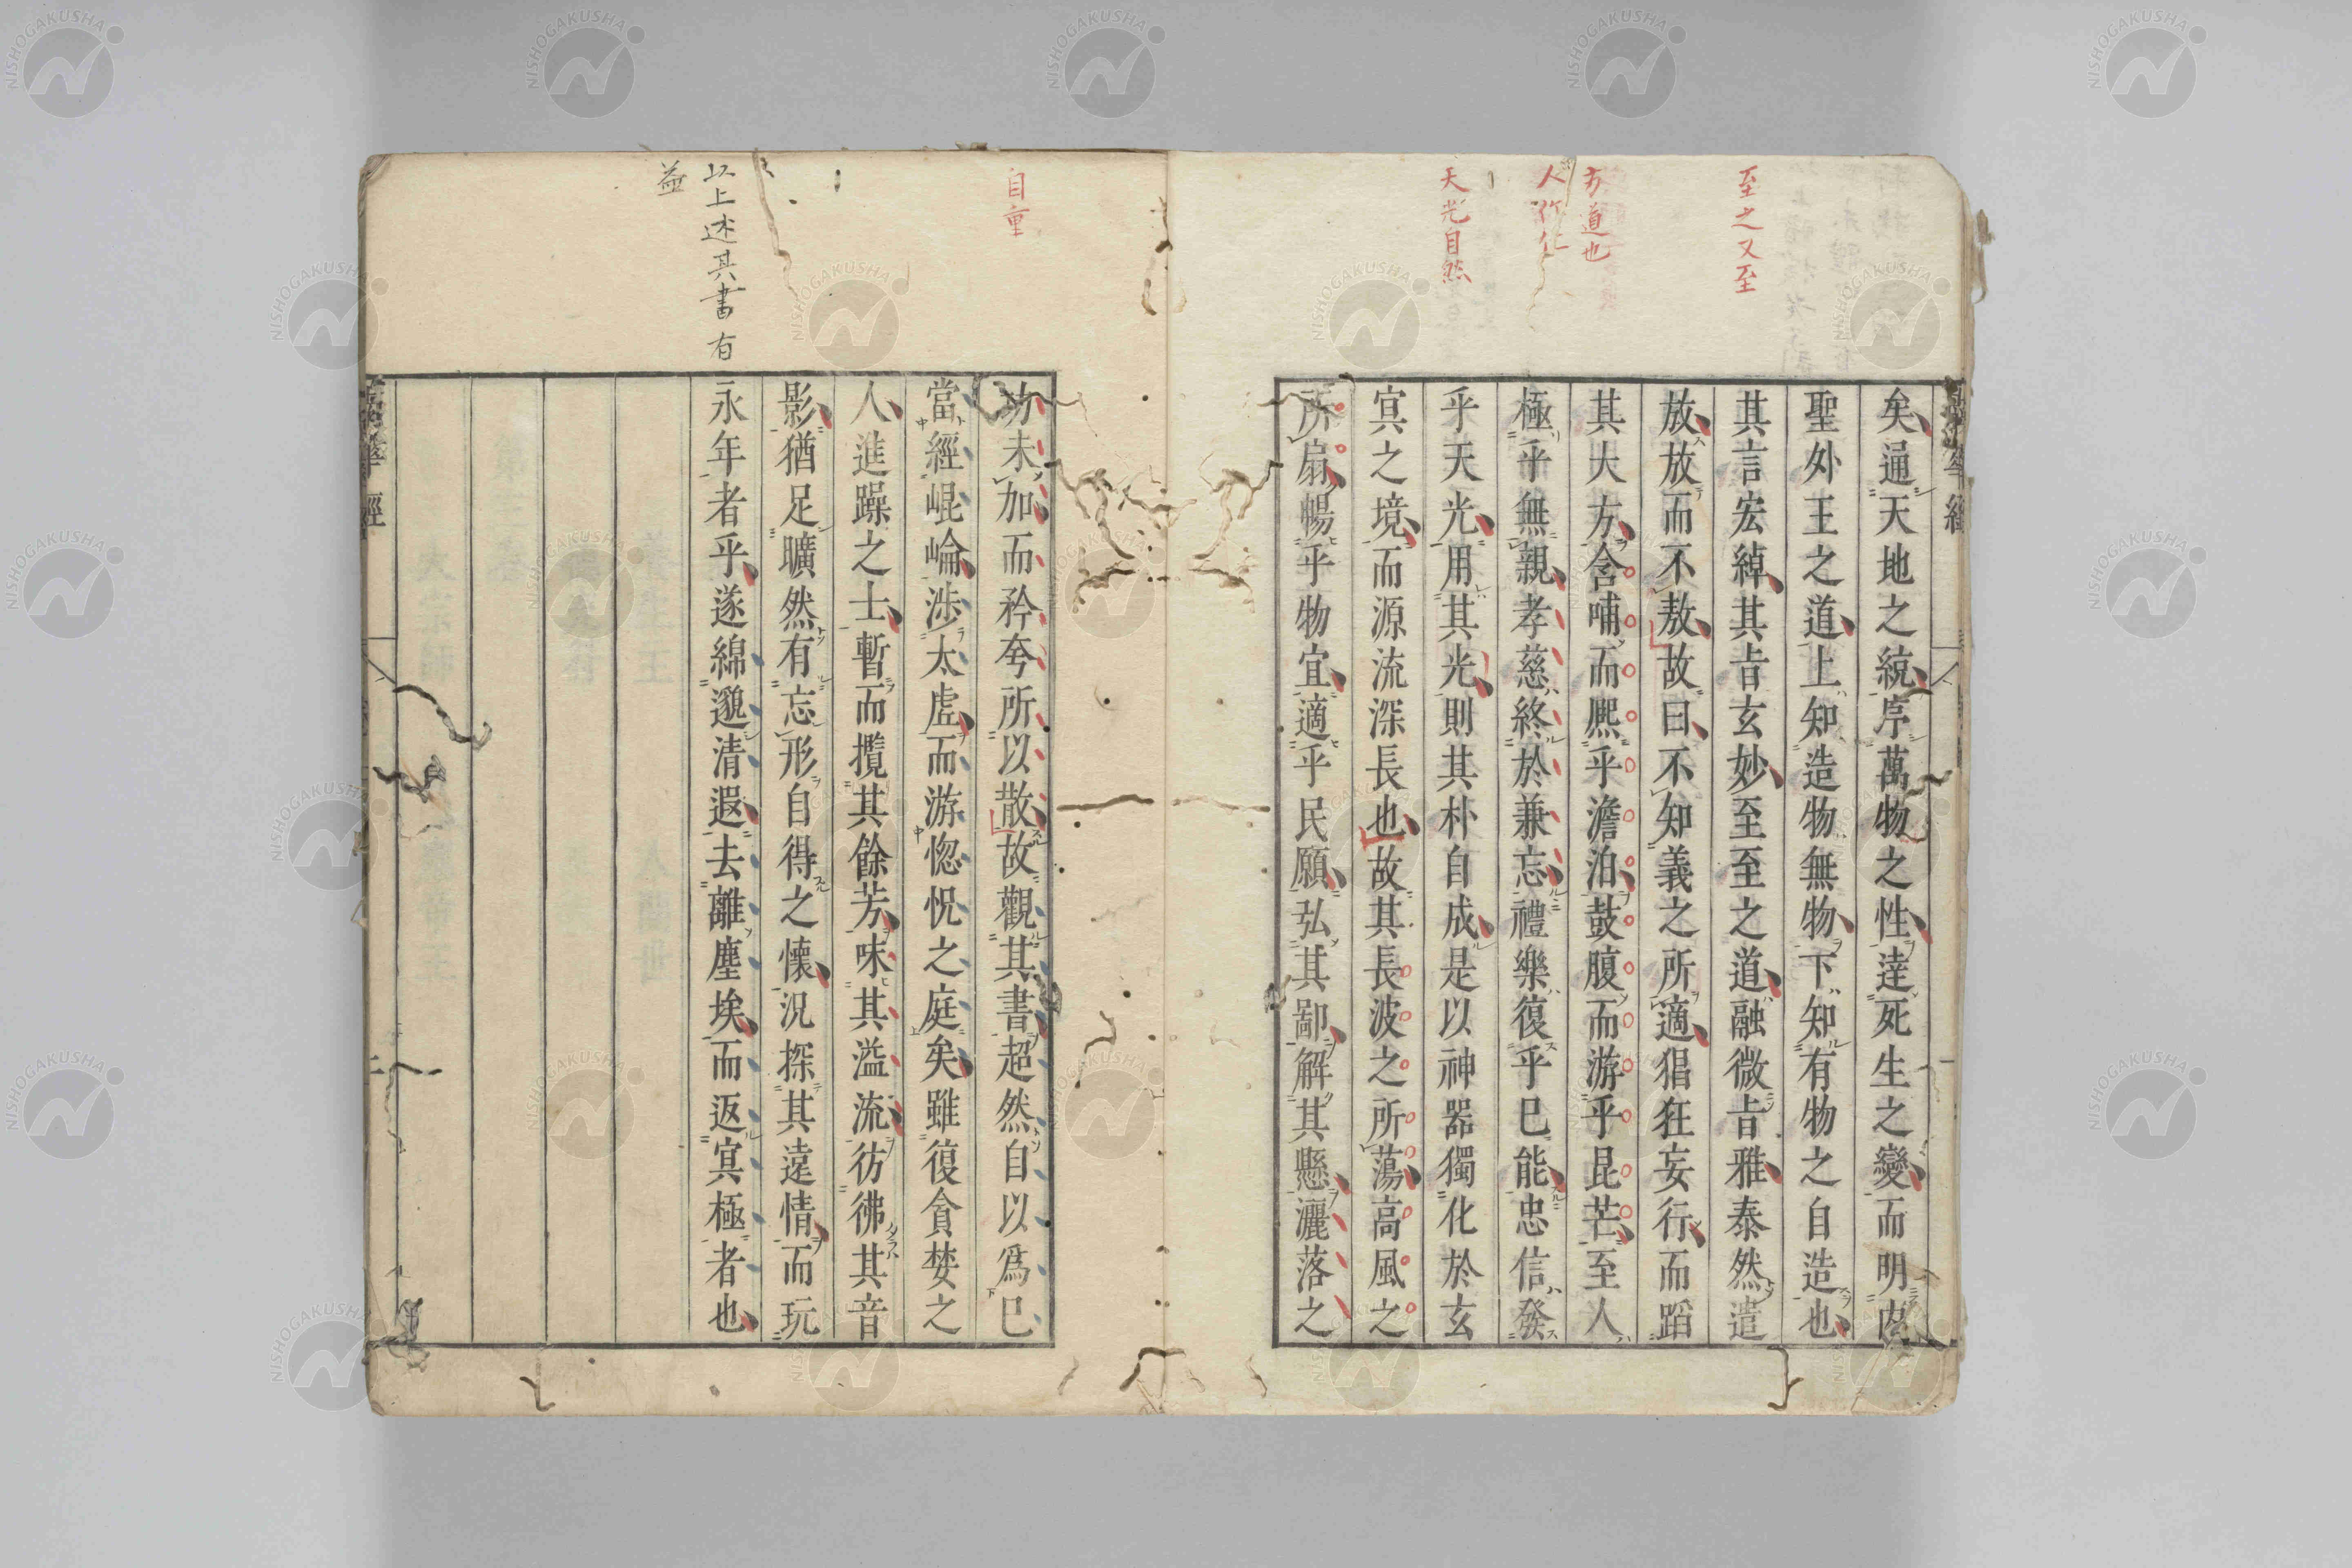 至之又至
方道也
人行仁
天光自然
矣通天地之統序萬物之性達死生之變而明内
聖外王之道上知造物無物下知有物之自造也
其言宏綽其㫖玄妙至至之道融微㫖雅泰然遣
放放而不敖故曰不知義之所適猖狂妄行而蹈
其大方含哺而熈乎澹泊鼓腹而游乎昆芒至人
極乎無親孝慈終於兼忘禮樂復乎巳能忠信發
乎天光用其光則其朴自成是以神器獨化於玄
冥之境而源流深長也故其長波之所蕩高風之
所扇暢乎物宜適乎民願弘其鄙解其懸灑落之
自重
以上述其書有
益
功未加而矜夸所以散故觀其書超然自以爲巳
當經崐崘涉太虛而游惚怳之庭矣雖復貪婪之
人進躁之士暫而攬其餘芳味其溢流彷彿其音
影猶足曠然有忘形自得之懷況探其遠情而玩
永年者乎遂綿邈清遐去離塵埃而返冥極者也